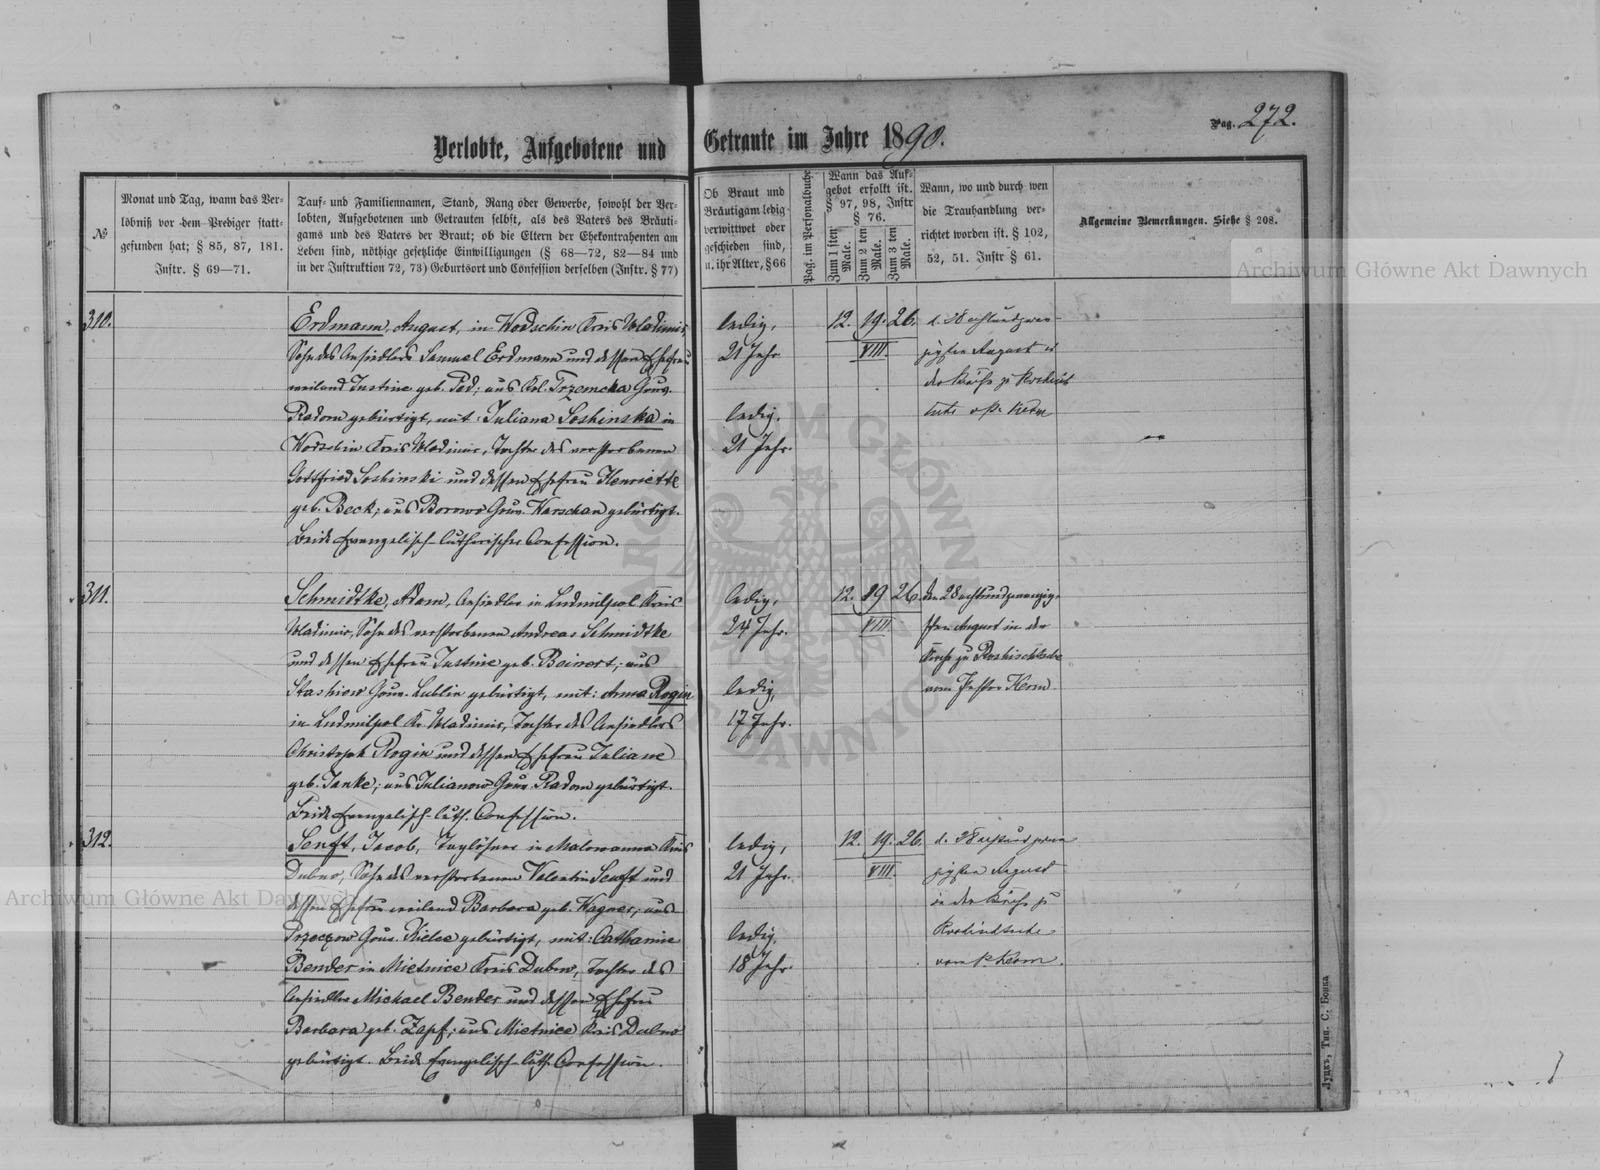 Pag. 272.
Verlobte, Aufgebotene und Getraute im Jahre 1890.
№
Monat und Tag, wann das Ver-
löbniß vor dem Prediger statt-
gefunden hat; § 85, 87, 181.
Instr. § 69—71.
Tauf- und Familiennamen, Stand, Rang oder Gewerbe, sowohl der Ver-
lobten, Aufgebotenen und Getrauten selbst, als des Vaters des Bräuti-
gams und des Vaters der Braut; ob die Eltern der Ehekontrahenten am
Leben sind, nöthige gesetzliche Einwilligungen (§ 68—72, 82—84 und
in der Instruktion 72, 73) Geburtsort und Confession derselben (Instr. § 77)
Ob Braut und
Bräutigam ledig
verwittwet oder
geschieden sind,
u. ihr Alter, § 66
Pag. im Personalbuche
Wann das Auf-
gebot erfolkt ist.
§ 97, 98, Instr
§ 76.
Zum 1 sten Male.
Zum 2 ten Male.
Zum 3 ten Male.
Wann, wo und durch wen
die Trauhandlung ver-
richtet worden ist. § 102,
52, 51. Instr § 61.
Allgemeine Bemerkungen. Siehe § 208.
310.
Erdmann, August, in Wodschin Kreis Wladimir,
Sohn des Ansiedlers Samuel Erdmann und dessen Ehefrau
weiland Justine geb. Ped; aus Kol. Trzemcha Gouv.
Radom gebürtigt, mit: Juliana Soshinska in
Wodschin Kreis Wladimir, Tochter des verstorbenen
Gottfried Soshinski und dessen Ehefrau Henriette
geb. Beck; aus Borowo Gouv. Warschau gebürtigt.
Beide Evangelisch-lutherischer Confession.
ledig,
21 Jahr
ledig,
21 Jahr.
12. 19. 26.
VIII.
d. 28 achtundzwan-
zigsten August in
der Kirche zu
Kern
311.
Schmidtke, Adam, Ansiedler in Ludmilpol Kreis
Wladimir, Sohn des verstorbenen Andreas Schmidtke
und dessen Ehefrau Justine geb. Beinert; aus
Stashiow Gouv. Lublin gebürtigt, mit: Anna Rogin
in Ludmilpol Kr. Wladimir, Tochter des Ansiedlers
Christoph Rogin und dessen Ehefrau Juliane
geb. Janke; aus Julianow Gouv. Radom gebürtigt.
Beide Evangelisch-luth. Confession.
ledig,
24 Jahr.
ledig,
17 Jahr.
12. 19 26.
VIII.
den 28 achtundzwanzig-
sten August in der
Kirche zu Roshischtsche
vom Pastor Kern
312.
Senft, Jacob, Taglöhner in Malowanna Kreis
Dubno, Sohn des verstorbenen Valentin Senft und
dessen Ehefrau weiland Barbara geb. Wagner; aus
Przeczow Gouv. Kielce gebürtigt, mit: Catharine
Bender in Mietnice Kreis Dubno, Tochter des
Ansiedlers Michael Bender und dessen Ehefrau
Barbara geb. Zapf; aus Mietnice Kreis Dubno
gebürtigt. Beide Evangelisch-luth. Confession.
ledig,
21 Jahr.
ledig,
18 Jahr.
12. 19. 26.
VIII.
d. 28 achtundzwan
zigsten August
in der Kirche zu
vom P. Kern.
Луцкъ, Тип. С. Бонка
Archiwum Główne Akt Dawnych
Archiwum Główne Akt Dawnych
ARCHIWUM GŁÓWNE AKT DAWNYCH